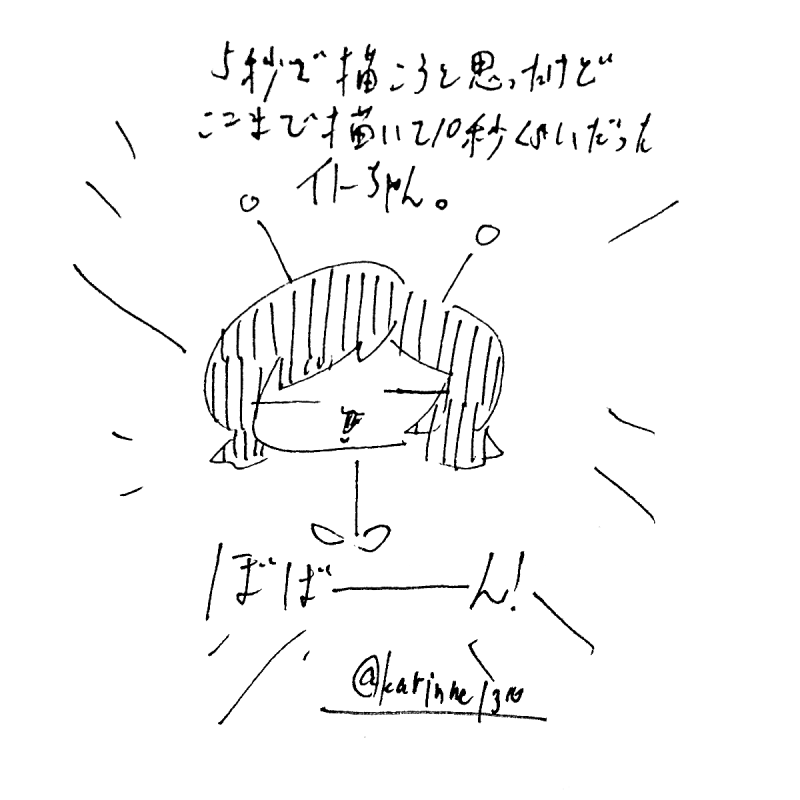 5秒で描こうと思ったけど
ここまで描いて10秒くらいだった
イトーちゃん。
ぼばーーん!